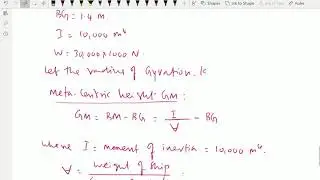 Ink to Shape
Ink to Text
BG = 1.4 m
I = 10,000 m⁴
W = 30,000×1000 N
let the radius of Gyration. k
meta-Centric height GM:
GM = BM - BG = I/∀ - BG
where I = moment of inertia = 10,000 m⁴.
∀ = weight of ship